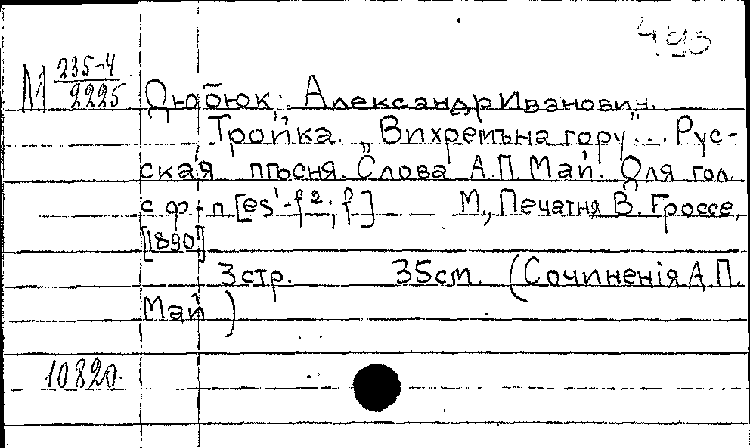 493
М 235-4
2225
Дюбюк, Александр Иванович.
Тройка. „Вихремъ на гору"... Рус-
ская пѣсня. Слова А.П Май. Для гол.
с ф-п [es¹-f²; f] М., Печатня В. Гроссе,
[1890]
3 стр. 35 см. (Сочиненія А. П.
Май)
10820.